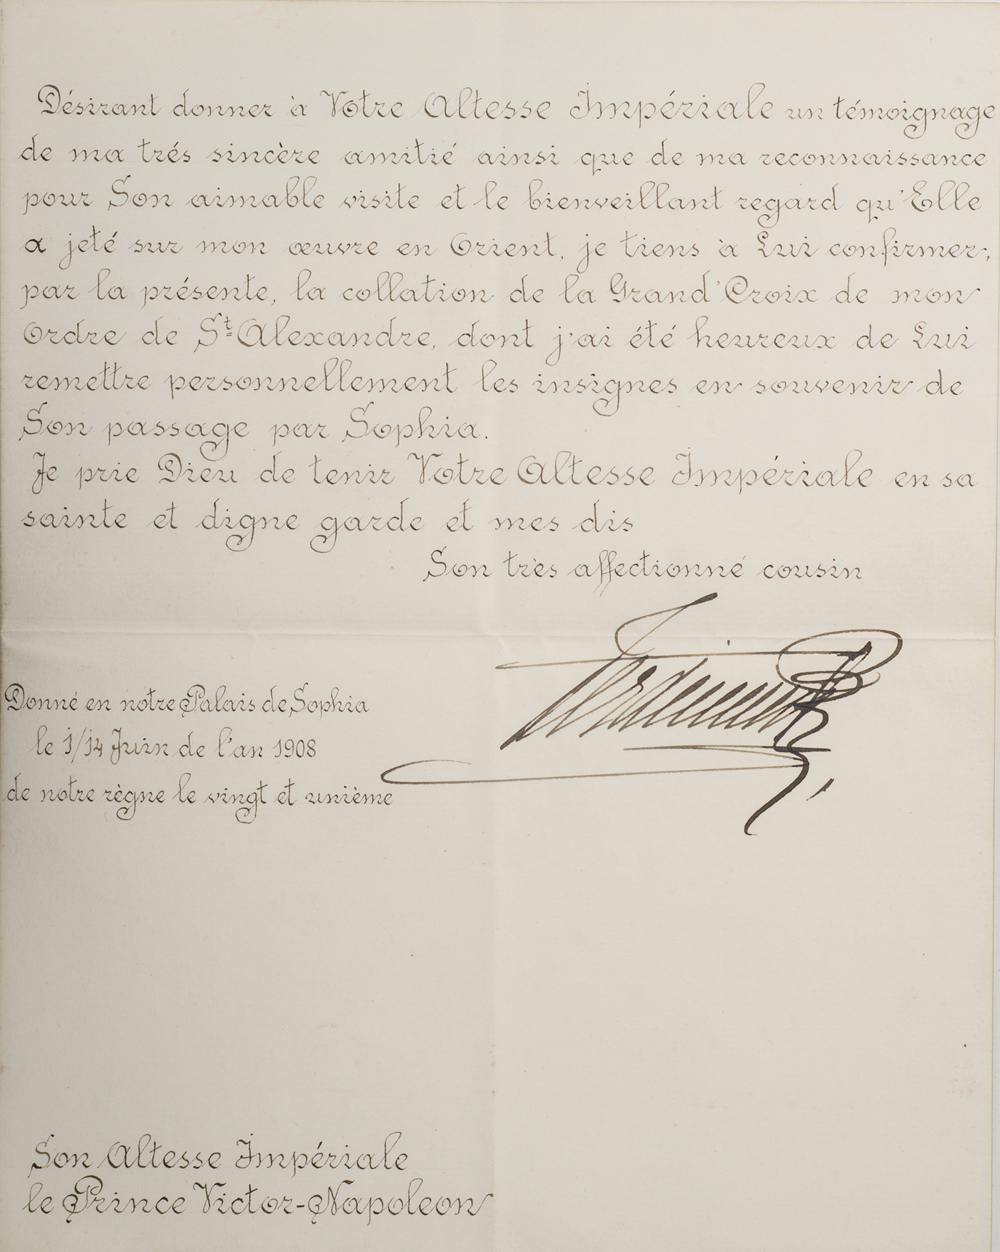 Désirant donner à Votre Altesse Impériale un témoignage
de ma trés sincère amitié ainsi que de ma reconnaissance
pour Son aimable visite et le bienveillant regard qu'Elle
a jeté sur mon œuvre en Orient, je tiens à Lui confirmer,
par la présente, la collation de la Grand'Croix de mon
Ordre de St Alexandre, dont j'ai été heureux de Lui
remettre personnellement les insignes en souvenir de
Son passage par Sophia.
Je prie Dieu de tenir Votre Altesse Impériale en sa
sainte et digne garde et mes dis
Son très affectionné cousin
Ferdinand
Donné en notre Palais de Sophia
le 1/14 Juin de l'an 1908
de notre règne le vingt et unième
Son Altesse Impériale
le Prince Victor-Napoleon